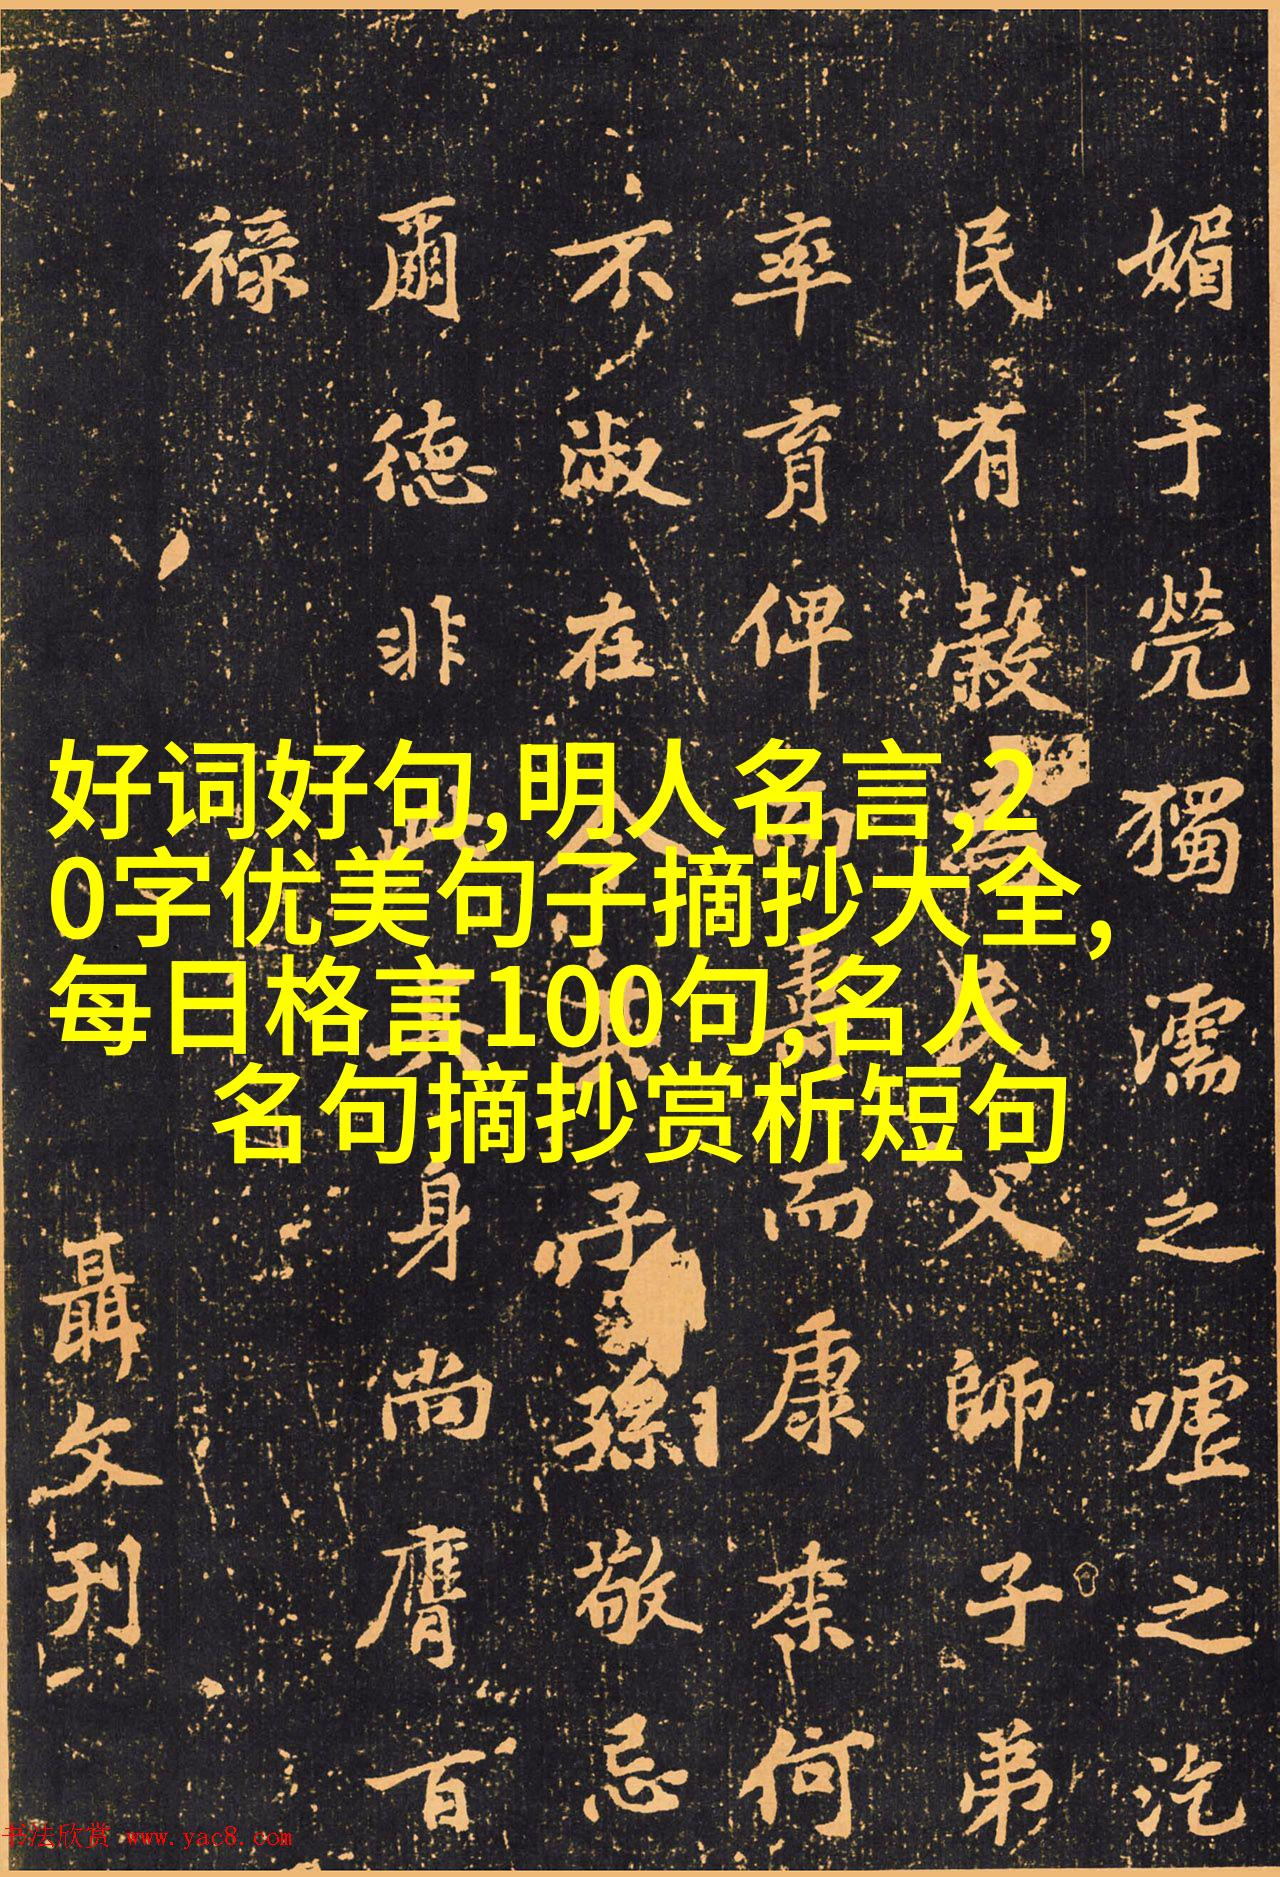 媚于煢獨濡之嘘之汔
民有穀為民父師子弟
率育俾而壽而康来何
不淑在今其子孫敬忌
爾德非此其身尚膺百
禄
聶文刊
好词好句,明人名言,2
0字优美句子摘抄大全,
每日格言100句,名人
名句摘抄赏析短句
书法欣赏 www.yac8.com